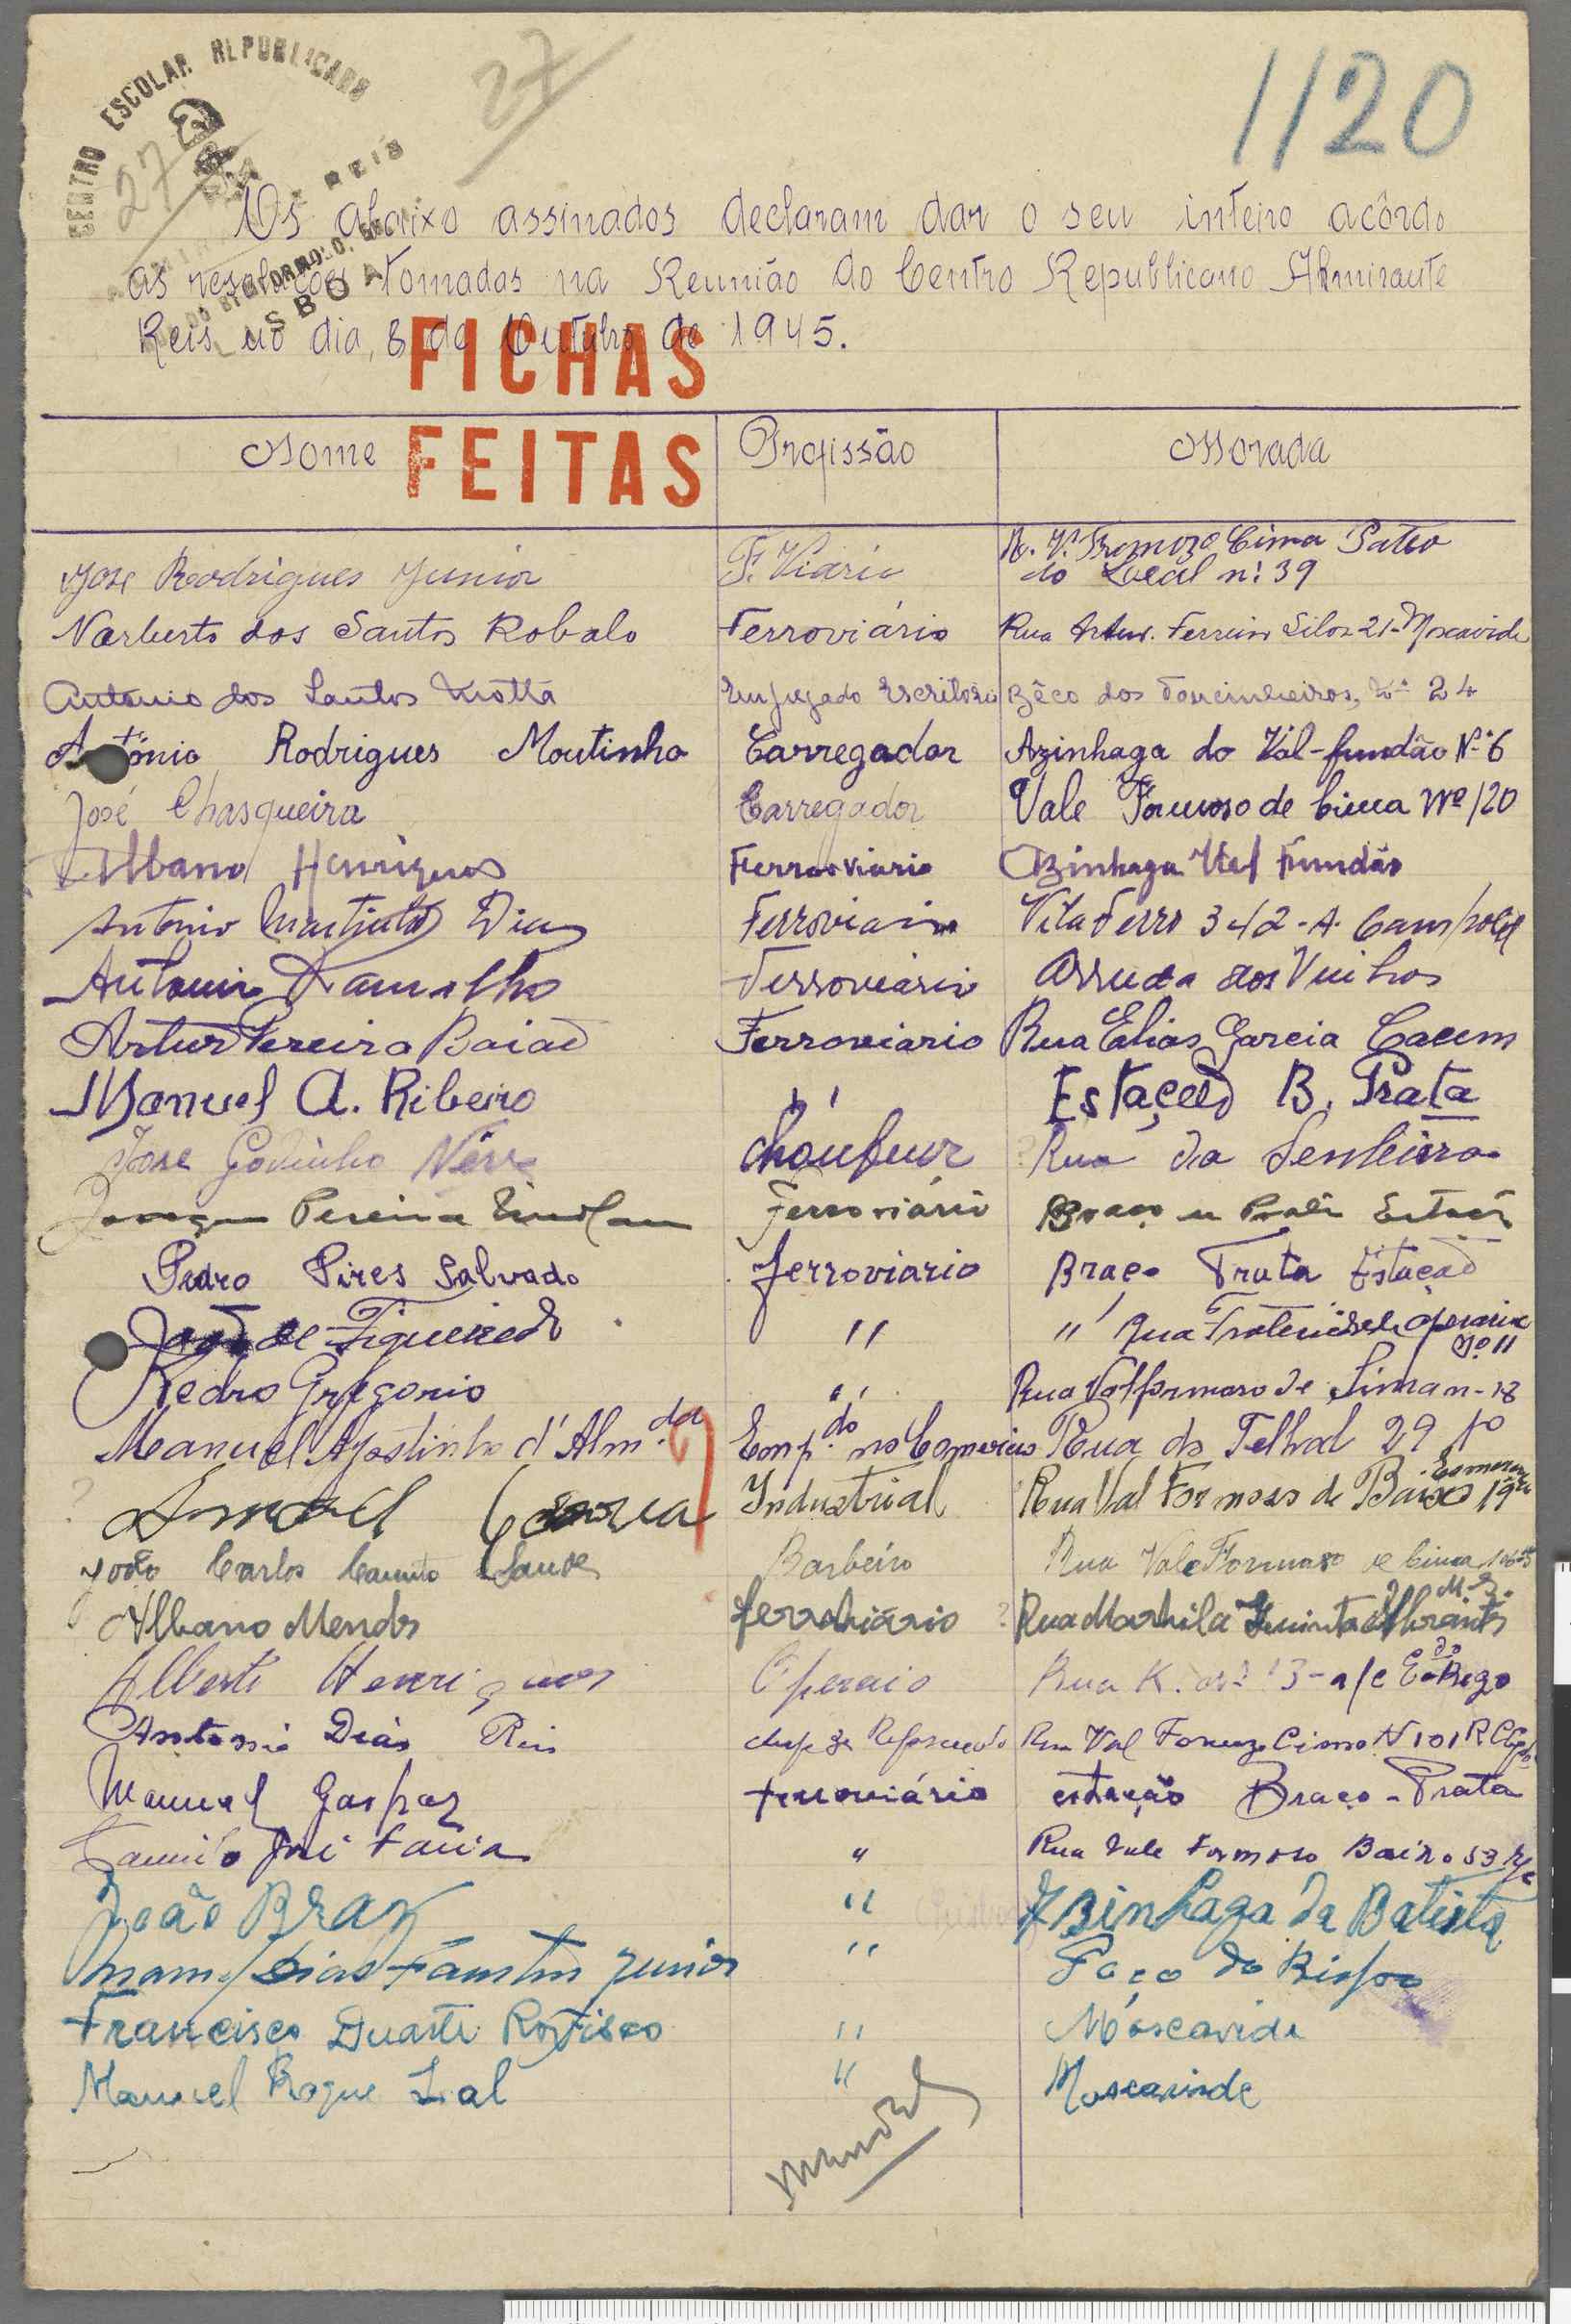 CENTRO ESCOLAR REPUBLICANO
REIS
LISBOA
27
27
1120
Os abaixo assinados declaram dar o seu inteiro acôrdo
as resoluções tomadas na Reunião do Centro Republicano Almirante
Reis no dia, 8 de Outubro de 1945.
FICHAS
FEITAS
Nome Profissão Morada
José Rodrigues Junior F. Viário R. V. Fromozo Cima Pateo
do Local nº 39
Norberto dos Santos Robalo Ferroviário Rua Artur Ferreira Silva 21-Moscavide
Antonio dos Santos Motta Empregado Escritorio Bêco dos Toucinheiros, Nº 24
António Rodrigues Moutinho Carregador Azinhaga do Val-fundão Nº 6
José Chasqueira Carregador Vale Formoso de Cima Nº 120
Albano Henriques Ferroviario Azinhaga Val Fundão
Antonio Martinho Dias Ferroviario Vila Ferro 342-A. Campolid
Antonio Ramalho Ferroviário Arruda dos Vinhos
Artur Pereira Baiao Ferroviario Rua Elias Garcia Cacem
Manuel A. Ribeiro " Estação B. Prata
Jose Godinho Neves choufeur ? Rua da Senteeira
Pereira Ferroviário Braço u Prata Estaçã
Pedro Pires Salvado ferroviario Braço Prata Estação
João de Figueiredo " " Rua Fraternidade operaria
Nº 11
Pedro Gregorio " Rua Valformoso de Sima n-18
Manuel Agostinho d'Almda Empdo no Comercio Rua do Telhal 29 1º
? Ismael Correia Industrial Rua Val Formoso de Baixo 19
João Carlos Camito Barbeiro Rua Vale Formoso de Cima
Albano Mendes ferroviário ? Rua Marhila Quinta Abrantes
M. 2.
Alberto Henriques Operaio Rua K. nº 13-a/c
Antonio Dias Reis Rua Val Formozo Cima N 101 R C
Manuel Gaspar ferroviário estação Braço-Prata
Camilo José Faria " Rua Vale Formoso Baixo 53
João Braz " Azinhaga da Batista
Manuel Dias Faustino Junior " Poço do Bispo
Francisco Duarte " Moscavide
Manuel Roque Leal " Moscavide